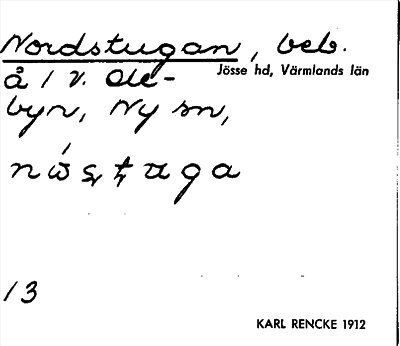 Nordstugan, beb.
Jösse hd, Värmlands län
å 1 v. Åle-
byn, Ny sn,
13
KARL RENCKE 1912